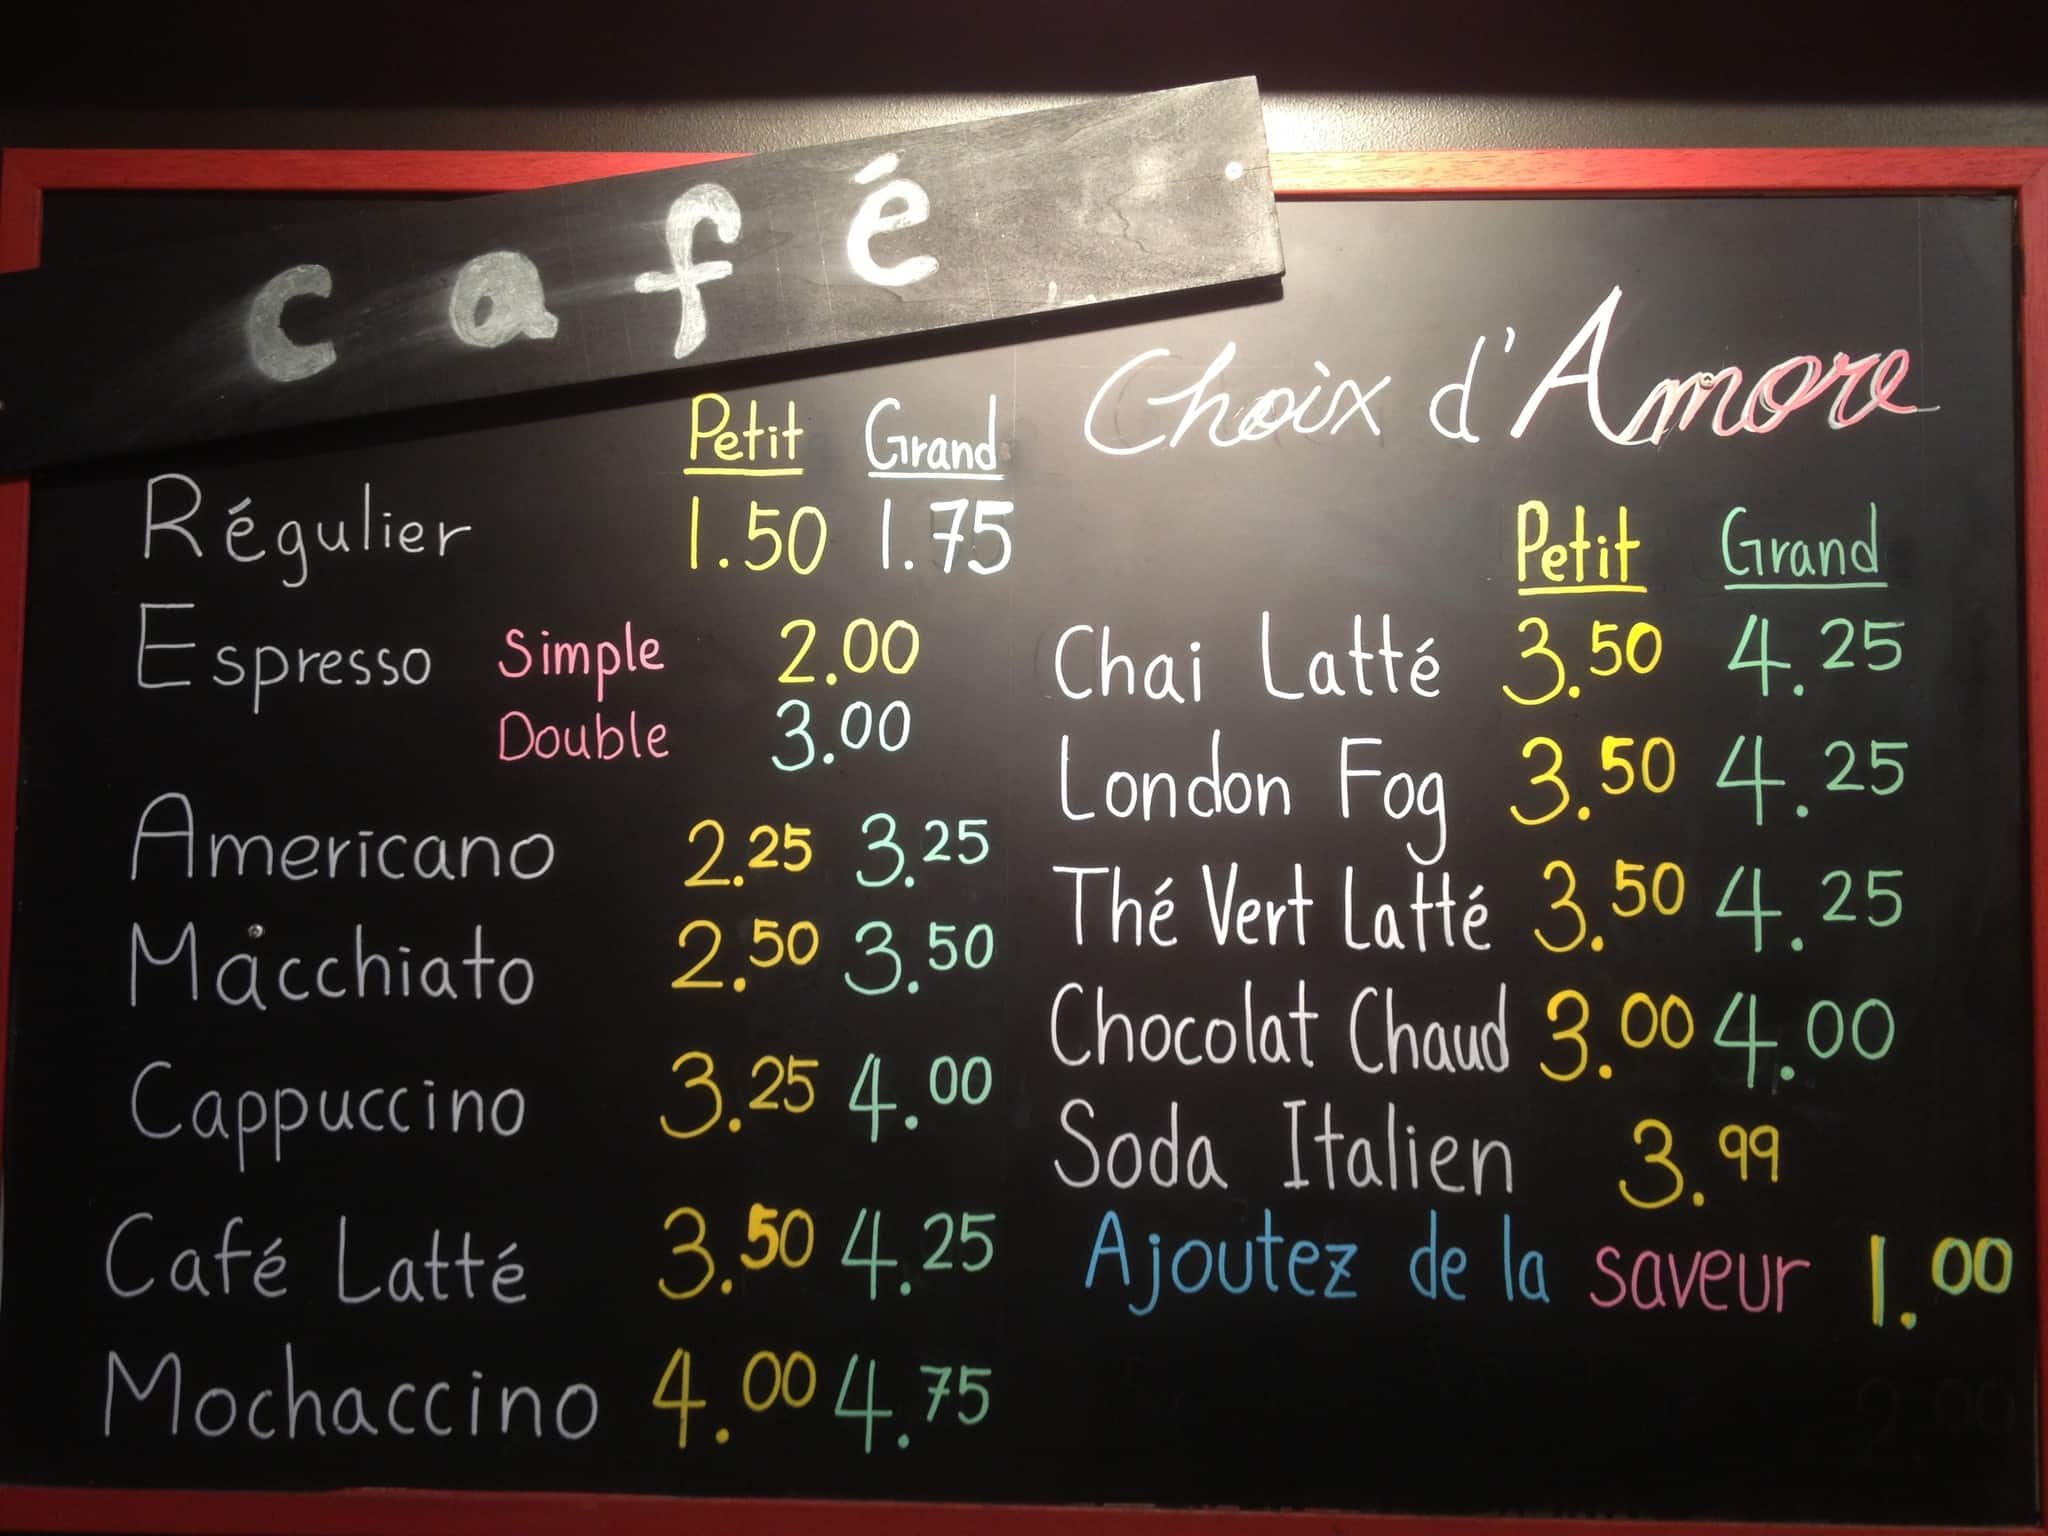 café
Petit Grand
Régulier 1.50 1.75
Espresso Simple 2.00
Double 3.00
Americano 2.25 3.25
Macchiato 2.50 3.50
Cappuccino 3.25 4.00
Café Latté 3.50 4.25
Mochaccino 4.00 4.75
Choix d'Amore
Petit Grand
Chai Latté 3.50 4.25
London Fog 3.50 4.25
Thé Vert Latté 3.50 4.25
Chocolat Chaud 3.00 4.00
Soda Italien 3.99
Ajoutez de la saveur 1.00